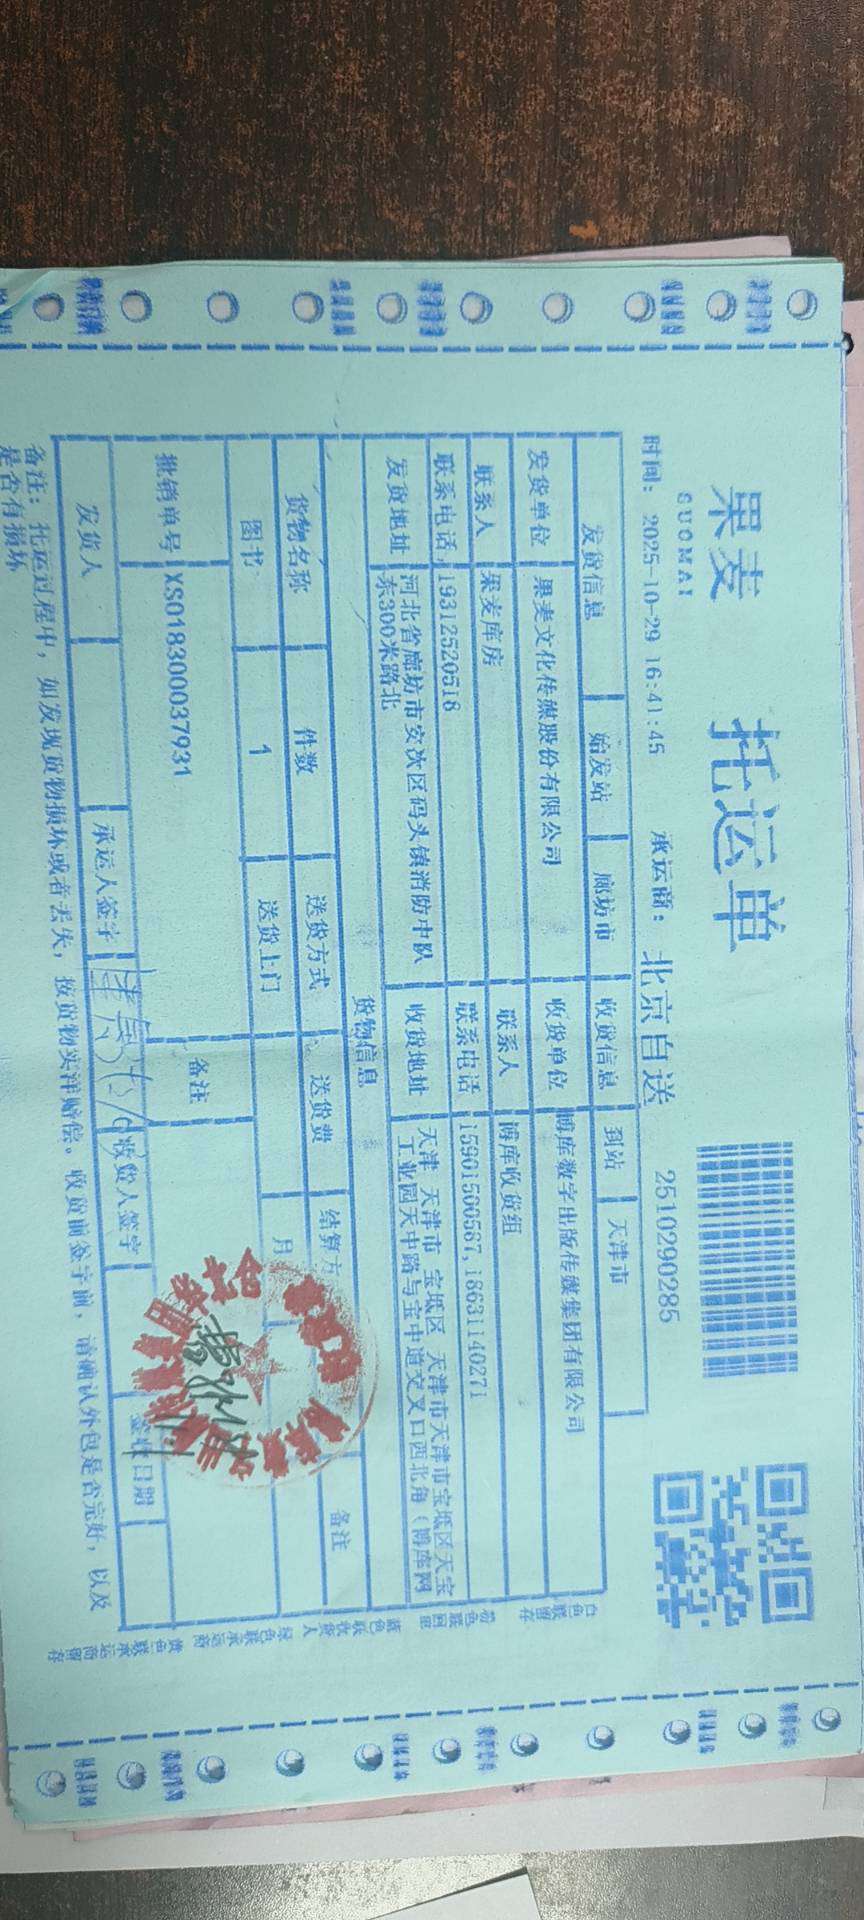 果麦 托运单
GUOMAI
时间: 2025-10-29 16:41:45 承运商: 北京自送 2510290285
发货信息 始发站 廊坊市 收货信息 到站 天津市
发货单位 果麦文化传媒股份有限公司 收货单位 博库数字出版传媒集团有限公司
联系人 果麦库房 联系人 博库收货组
联系电话 19312520516 联系电话 15901500587,18631140271
发货地址 河北省廊坊市安次区码头镇消防中队 收货地址 天津 天津市 宝坻区 天津市天津市宝坻区天宝
东300米路北 工业园天中路与宝中道交叉口西北角 (博库网
货物信息
货物名称 件数 送货方式 送货费 结算方 备注
图书 1 送货上门 月
批销单号 XS018300037931 备注
发货人 承运人签字 收货人签字 签收日期
备注: 托运过程中, 如发现货物损坏或者丢失, 按货物实洋赔偿。收货前签字前, 请确认外包是否完好, 以及
是否有损坏
白色联留存 粉色联回单 蓝色联收货人 绿色联承运商 黄色联承运商留存